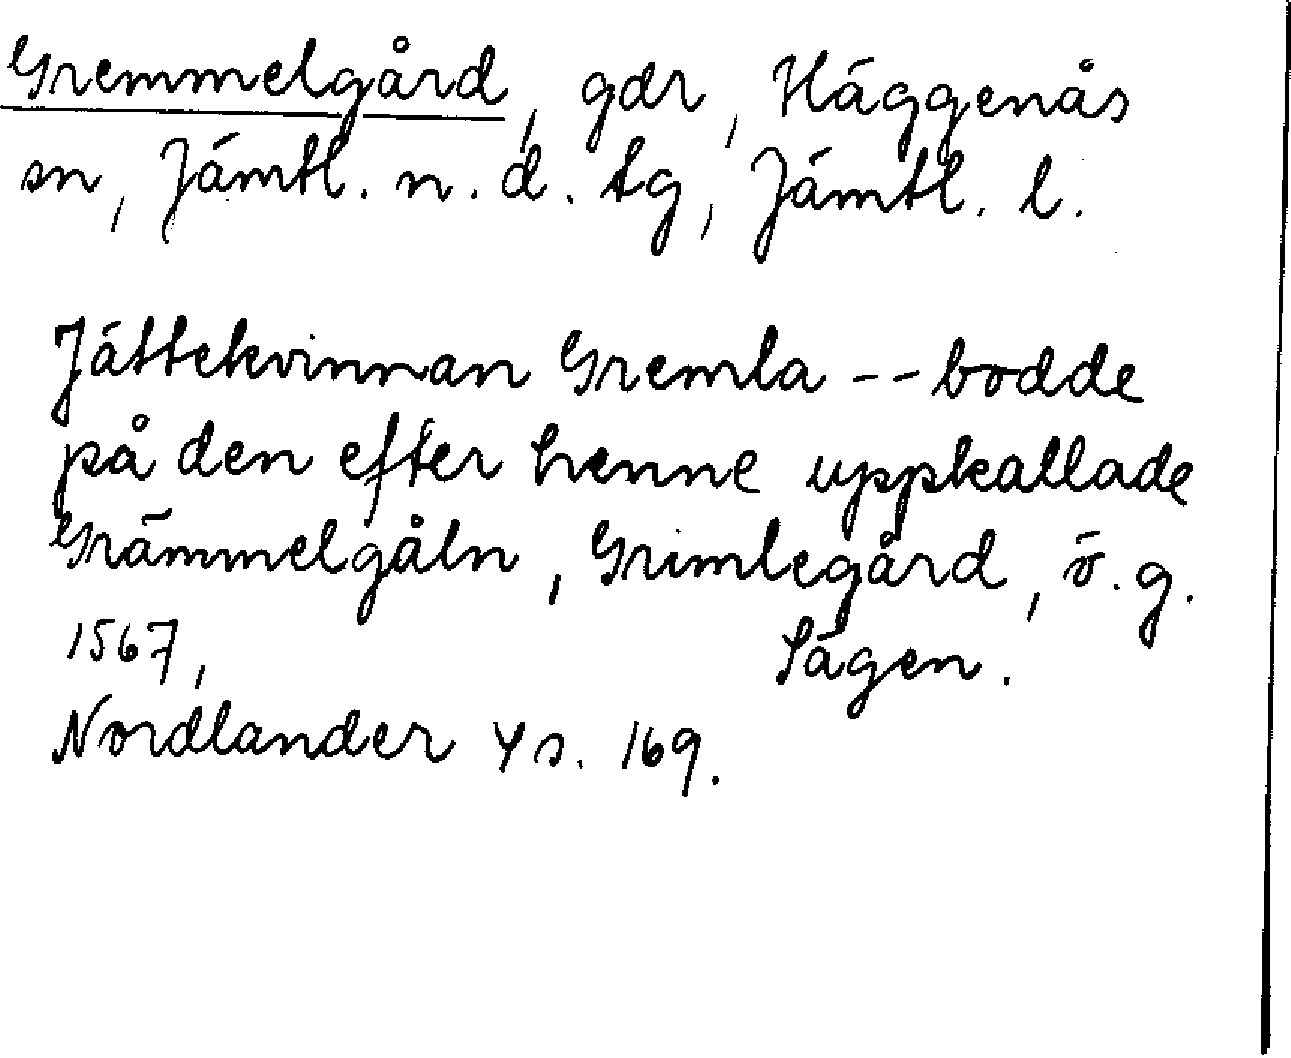 Gremmelgård, gdr, Häggenås
sn, Jämtl. n. d. tg, Jämtl. l.
Jättekvinnan Gremla -- bodde
på den efter henne uppkallade
Grämmelgåln, Grimlegård, ö. g.
1567, Sägen.
Nordlander 4 s. 169.